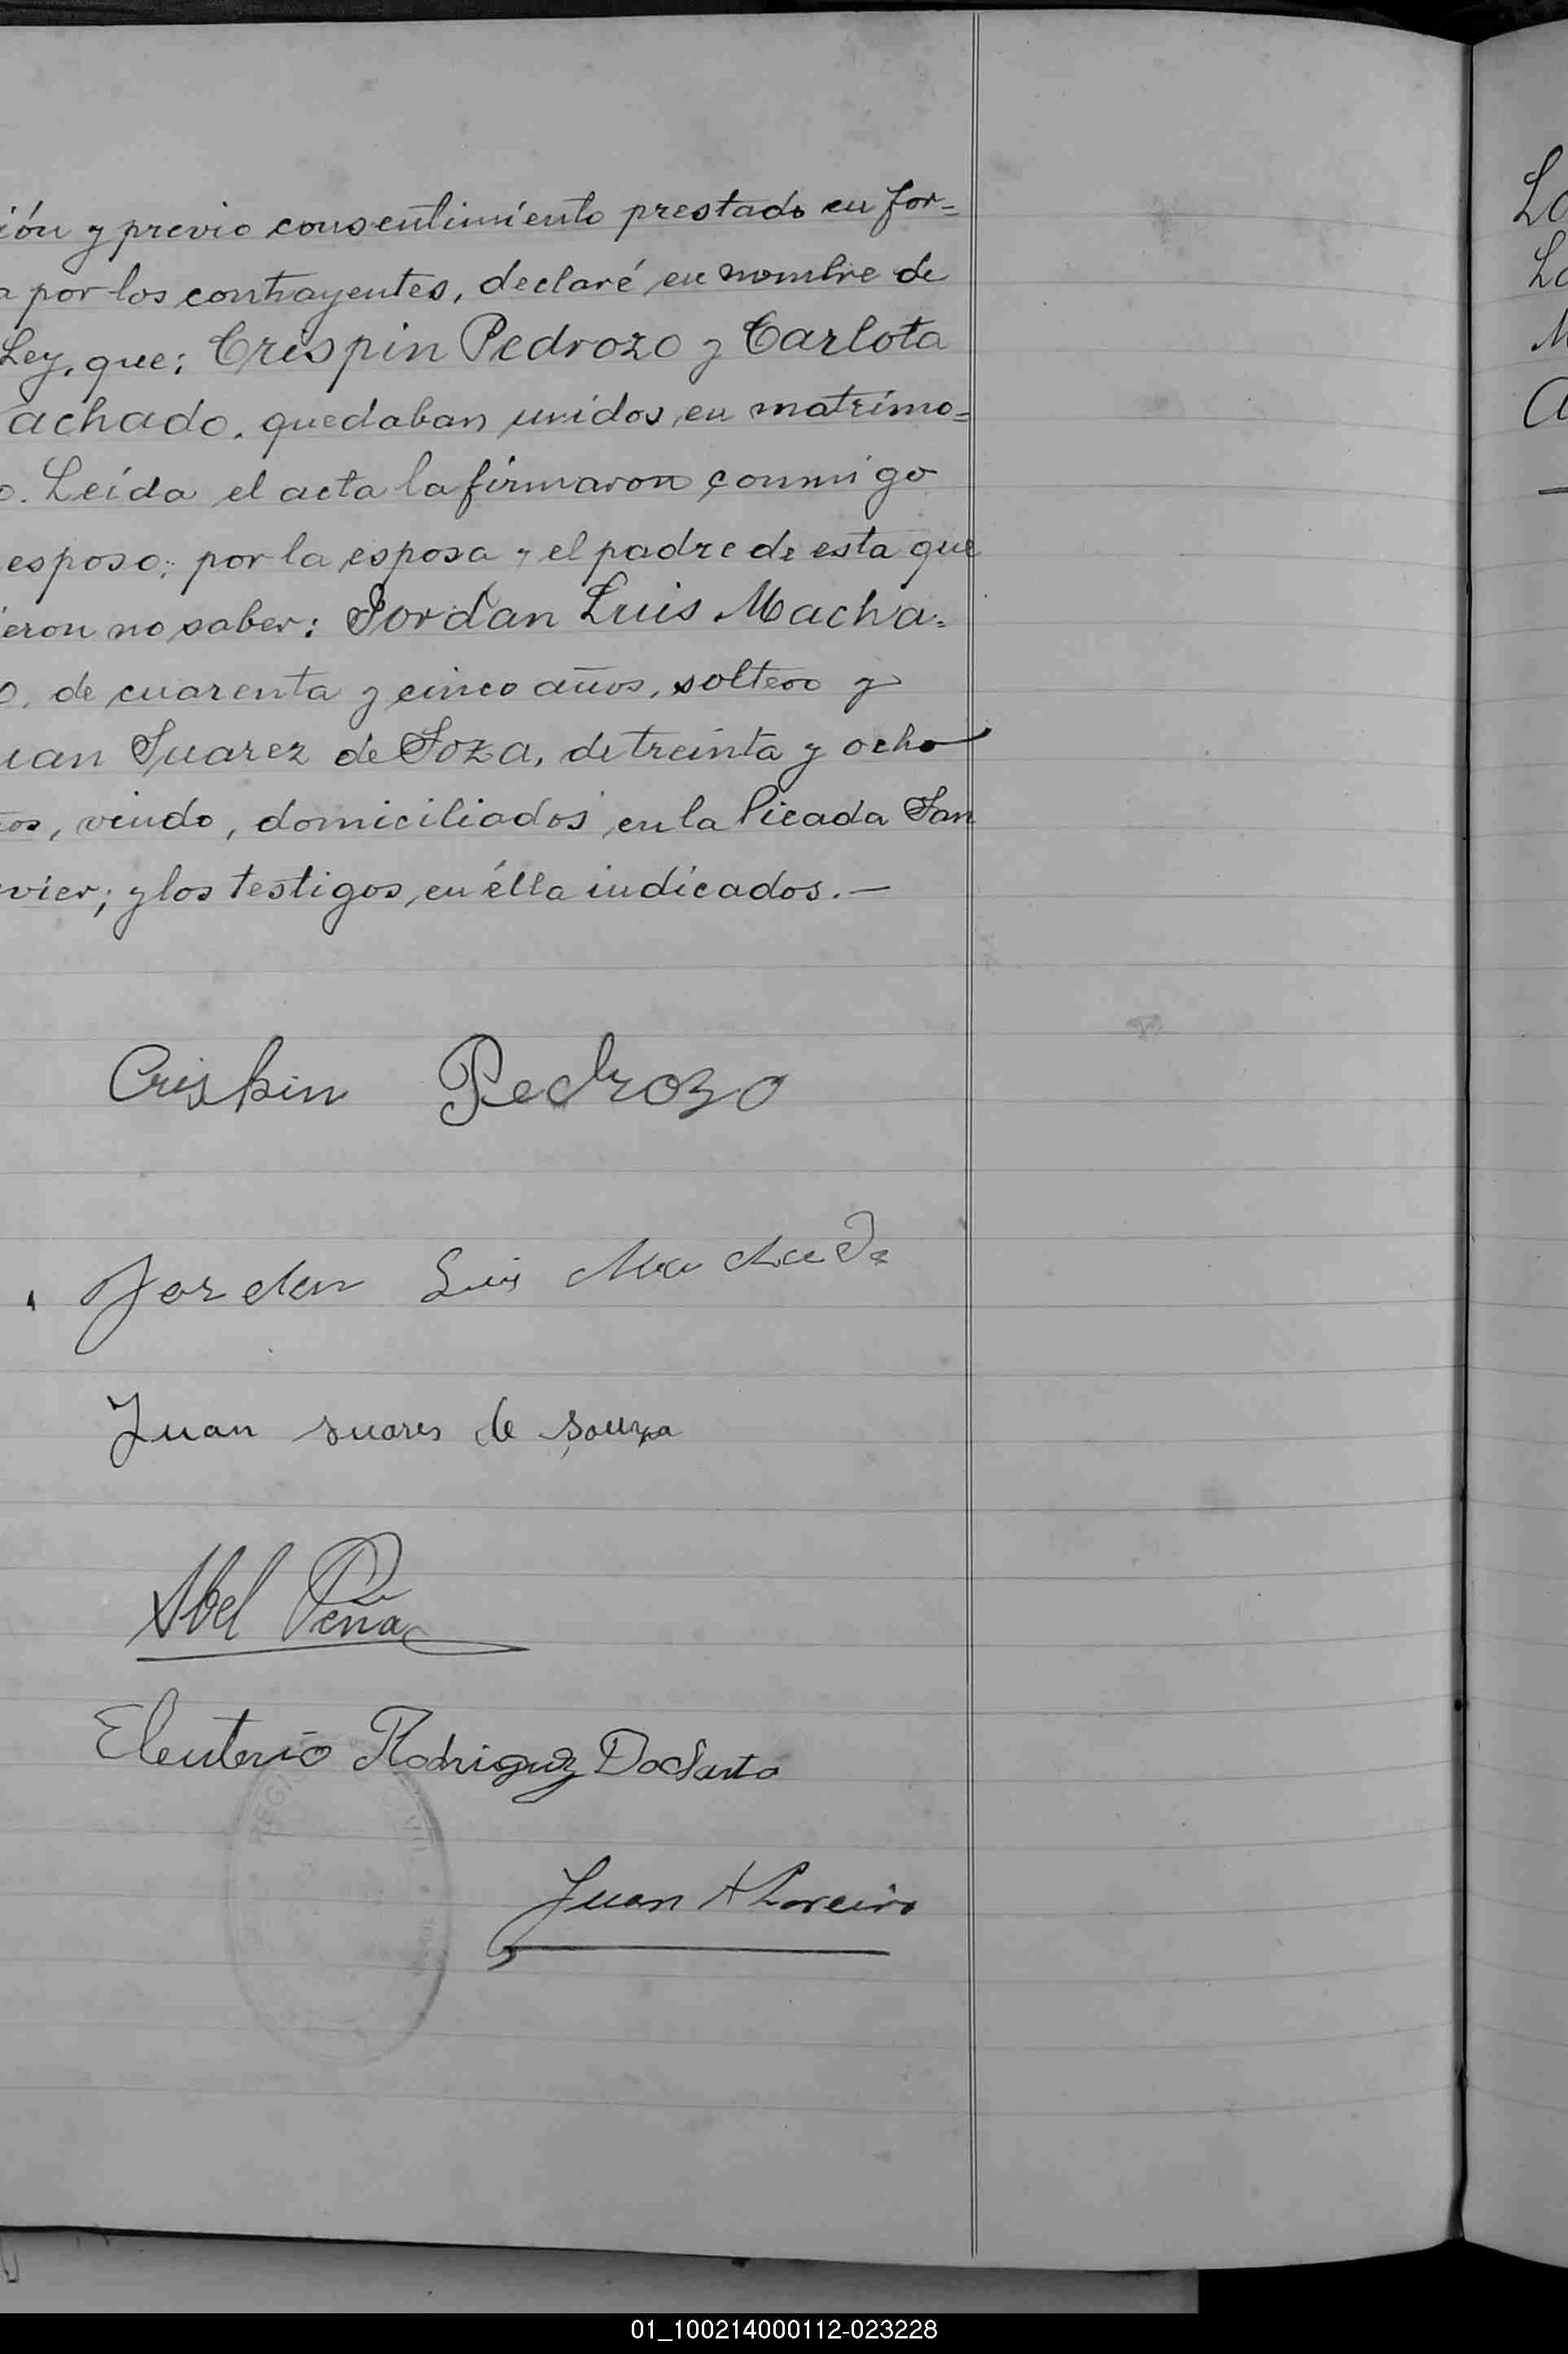 ión y previo consentimiento prestado en for=
a por los contrayentes, declaré en nombre de
Ley, que; Crispin Pedrozo y Carlota
achado, quedaban unidos en matrimo=
o. Leída el acta la firmaron conmigo
esposo; por la esposa y el padre de esta que
ieron no saber: Jordan Luis Macha=
o, de cuarenta y cinco años, soltero y
uan Suarez de Soza, de treinta y ocho
ños, viudo, domiciliados en la Picada San
vier; y los testigos en élla indicados.—
Crispin Pedrozo
Jordan Luis Machado
Juan suares de souza
Abel Peña
Eleuterio Rodriguez Dos Santo
Juan A Loreiro
REGI
VIL
Lo
Lo
M
01_100214000112-023228